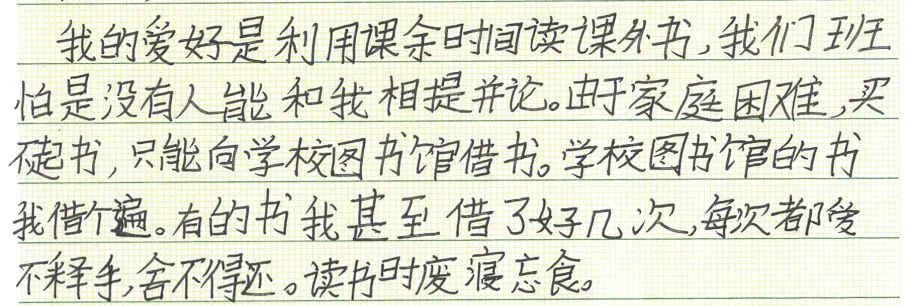 我的爱好是利用课余时间读课外书,我们班
怕是没有人能和我相提并论。由于家庭困难,买
不起书,只能向学校图书馆借书。学校图书馆的书
我借个遍。有的书我甚至借了好几次,每次都爱
不释手,舍不得还。读书时废寝忘食。